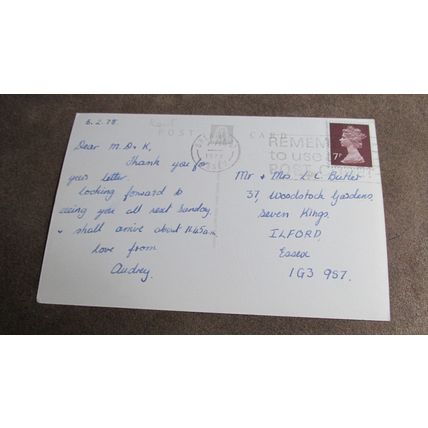 6.2.78
POST CARD
Dear M. D & K,
Thank you for
your letter.
Looking forward to
seeing you all next Sunday
& shall arrive about 11.45am
love from
Audrey.
REMEMBER
to use
POST
7P
Mr & Mrs L C Butler
37, Woodstock Gardens,
Seven Kings.
ILFORD
Essex
IG3 9S7.